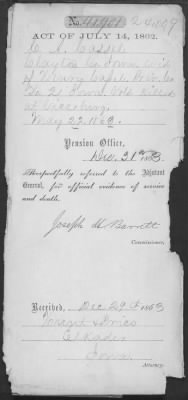 No. 41901 24,009
ACT OF JULY 14, 1862.
Clayton Co Iowa
of Henry Co.
21 Iowa Vols killed
at Vicksburg
May 22, 1863.
Pension Office,
Dec. 21st 1863.
Respectfully referred to the Adjutant
General, for official evidence of service
and death.
Joseph H Barrett
Commissioner.
Received, Dec 29th 1863
Elkader
Iowa
Attorney.